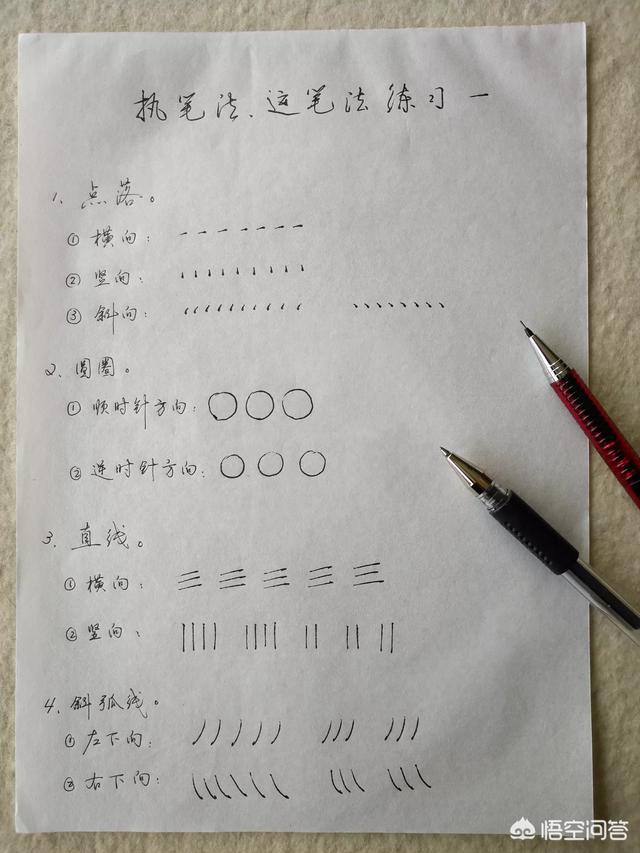 执笔法、运笔法练习一
1、点落。
①横向：
②竖向：
③斜向：
2、圆圈。
①顺时针方向：
②逆时针方向：
3、直线。
①横向：
②竖向、
4、斜弧线。
①左下向：
②右下向：
悟空问答